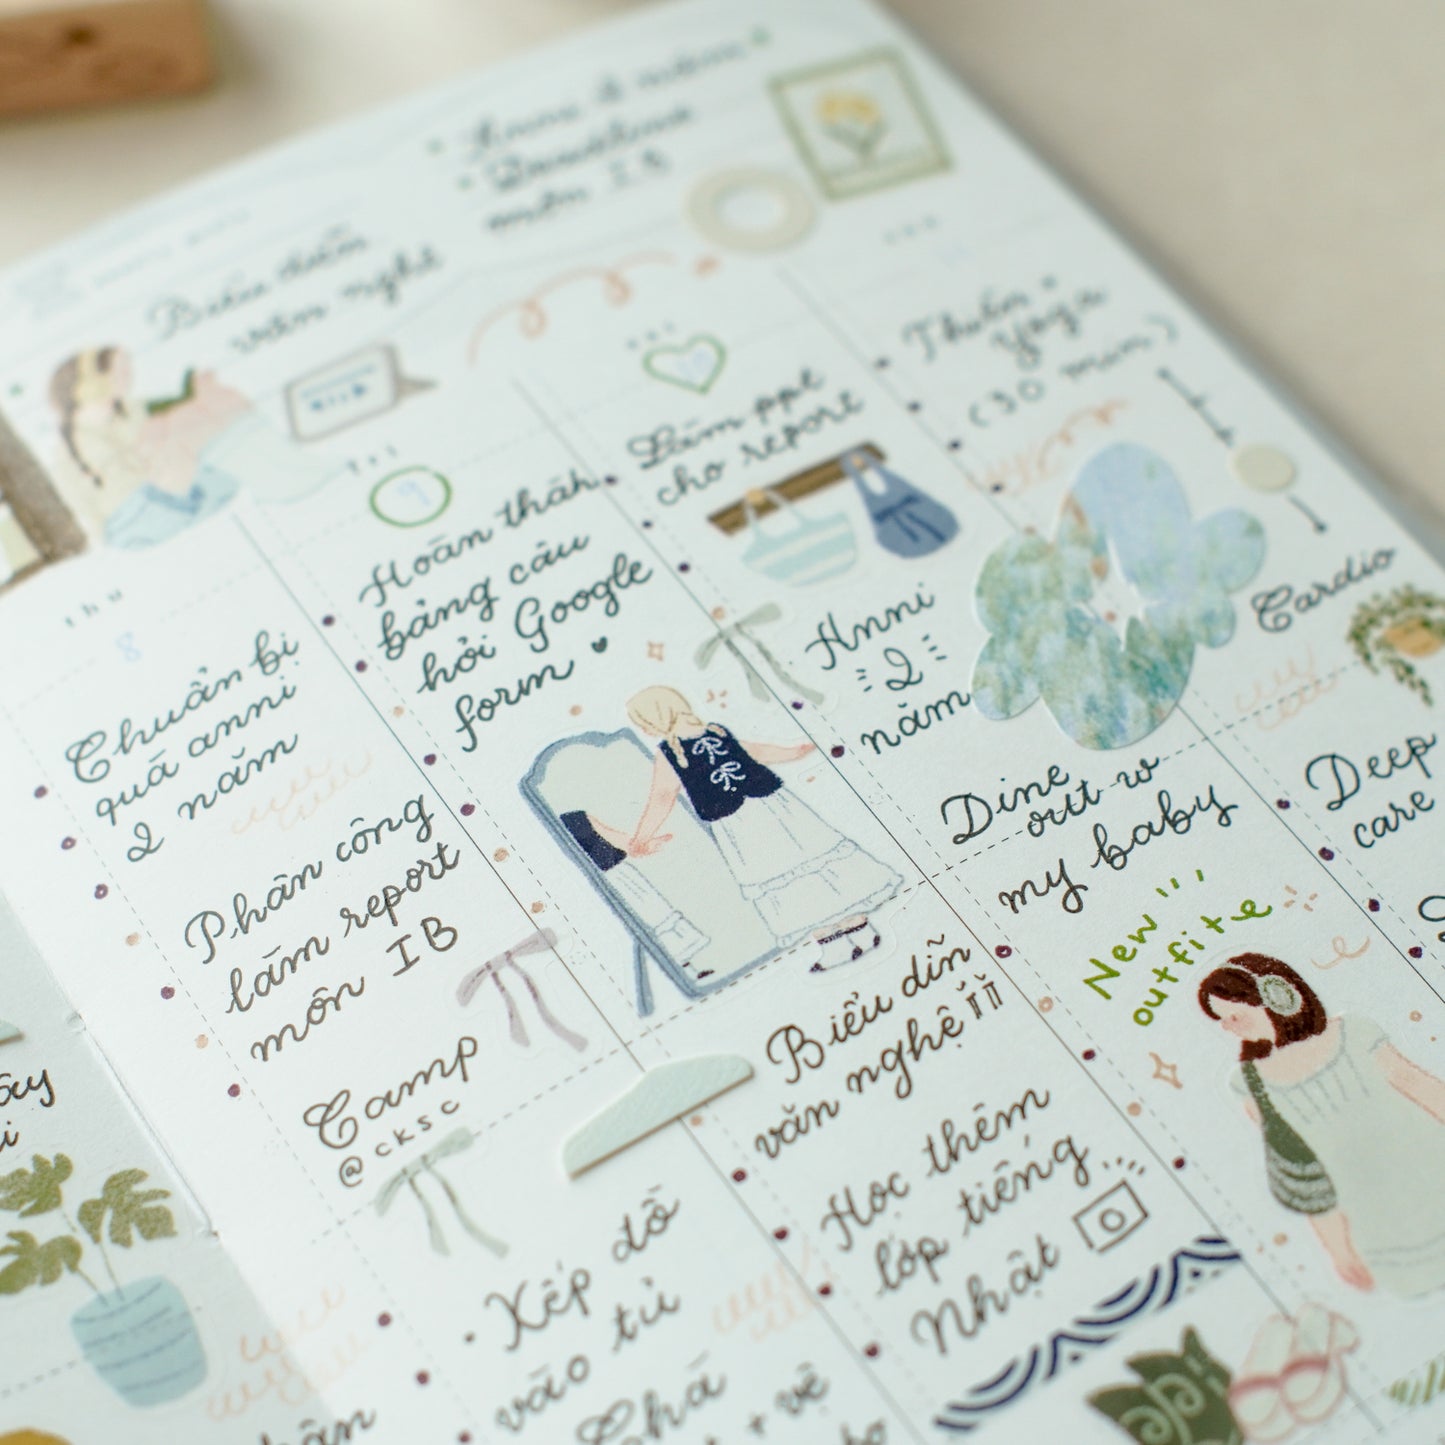 Biểu diễn
văn nghệ
môn IB
thu
8
Chuẩn bị
quà anni
2 năm
Phân công
làm report
môn IB
Camp
@cksc
9
Hoàn thành
bảng câu
hỏi Google
form
Xếp đồ
vào tủ
Làm ppt
cho report
Anni
2
năm
Biểu diễn
văn nghệ
Học thêm
lớp tiếng
Nhật
Thiền +
Yoga
(30 min)
Cardio
Dine
out w
my baby
New
outfite
Deep
care